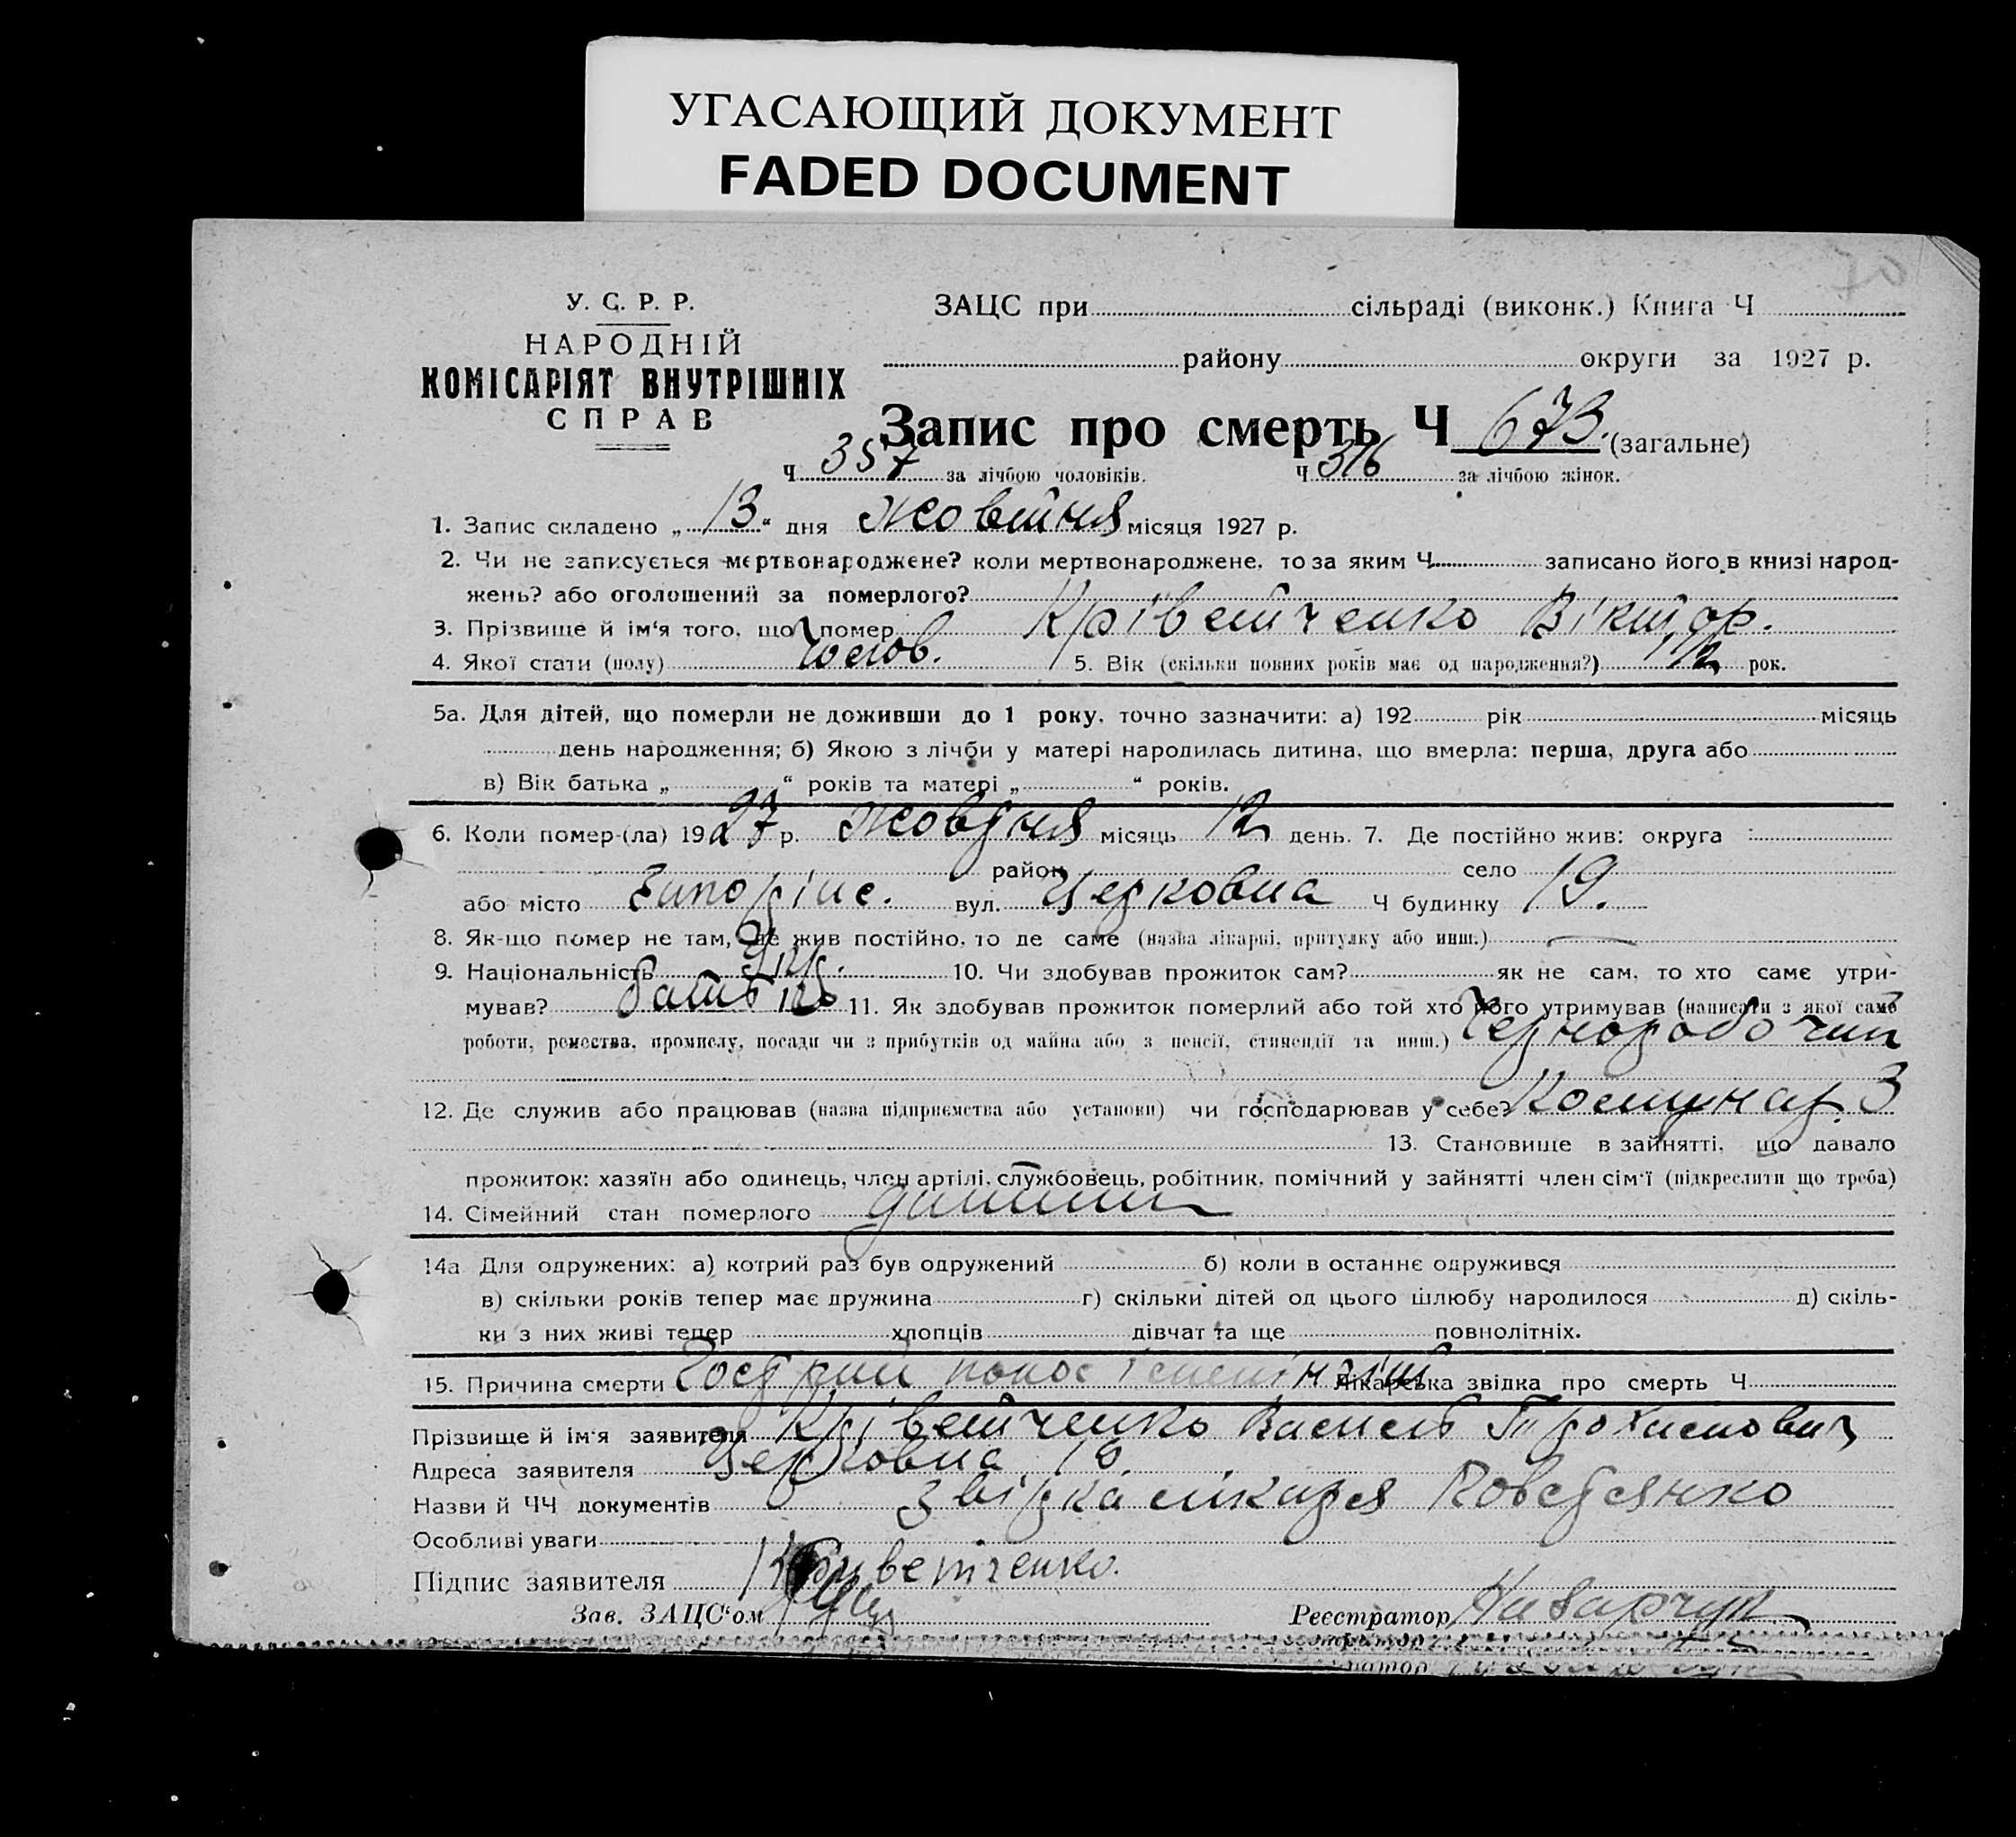 УГАСАЮЩИЙ ДОКУМЕНТ
FADED DOCUMENT
У. С. Р. Р.
НАРОДНІЙ
КОМІСАРІЯТ ВНУТРІШНІХ
СПРАВ
ЗАЦС при сільраді (виконк.) Книга Ч
району округи за 1927 р.
Запис про смерть Ч 673. (загальне)
Ч 357 за лічбою чоловіків. Ч 316 за лічбою жінок.
1. Запис складено „13“ дня жовтня місяця 1927 р.
2. Чи не записується мертвонароджене? коли мертвонароджене, то за яким Ч записано його в книзі народ-
жень? або оголошений за померлого?
3. Прізвище й ім‘я того, що помер Кріветченко Віктор.
4. Якої стати (полу) чолов. 5. Вік (скільки повних років має од народження?) 1 1/2 рок.
5а. Для дітей, що померли не доживши до 1 року, точно зазначити: а) 192 рік місяць
день народження; б) Якою з лічби у матері народилась дитина, що вмерла: перша, друга або
в) Вік батька „ “ років та матері „ “ років.
6. Коли помер-(ла) 1927 р. жовтня місяць 12 день. 7. Де постійно жив: округа
район село
або місто вул. Церковна Ч будинку 19.
8. Як-що помер не там, де жив постійно, то де саме (назва лікарні, притулку або инш.) —
9. Національність Укр. 10. Чи здобував прожиток сам? як не сам, то хто саме утри-
мував? батько 11. Як здобував прожиток померлий або той хто його утримував (написати з якої саме
роботи, ремества, промислу, посади чи з прибутків од майна або з пенсії, стипендії та инш.) Чернорабочий
12. Де служив або працював (назва підприємства або установи) чи господарював у себе? Комунар З
13. Становище в зайнятті, що давало
прожиток: хазяїн або одинець, член артілі, службовець, робітник, помічний у зайнятті член сім‘ї (підкреслити що треба)
14. Сімейний стан померлого дитина
14а Для одружених: а) котрий раз був одружений б) коли в останнє одружився
в) скільки років тепер має дружина г) скільки дітей од цього шлюбу народилося д) скіль-
ки з них живі тепер хлопців дівчат та ще повнолітніх.
15. Причина смерти Гострий понос Лікарська звідка про смерть Ч
Прізвище й ім‘я заявителя Кріветченко Василь
Адреса заявителя Церковна 19.
Назви й ЧЧ документів звідка лікаря
Особливі уваги
Підпис заявителя Криветченко.
Зав. ЗАЦС‘ом Реєстратор